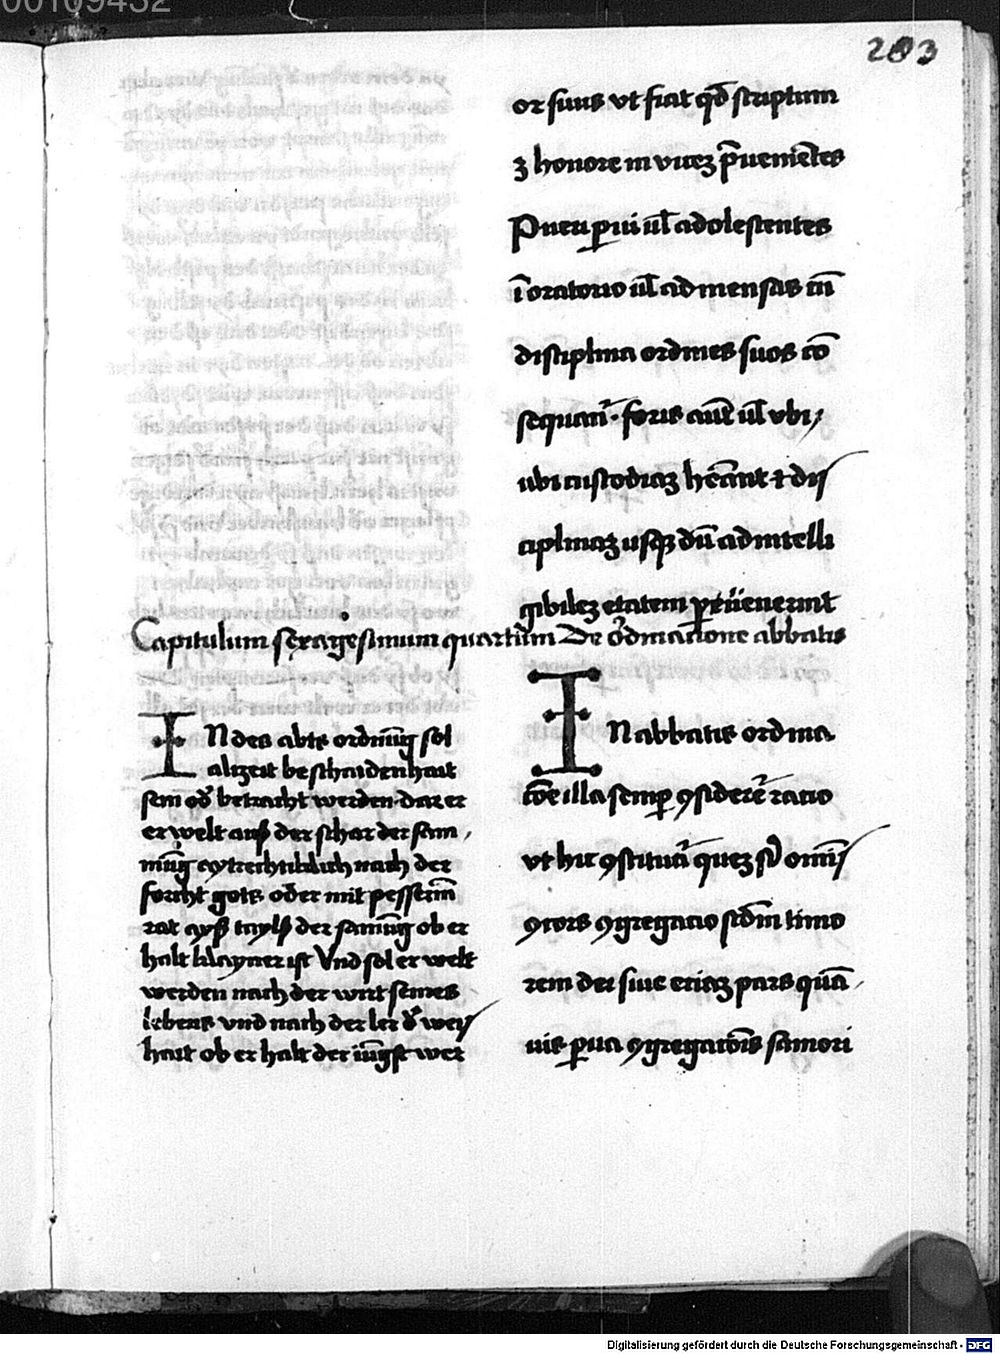 283
or suus vt fiat qd̄ scriptum
ꝫ honore in vicez p̄uenientes
Pueri ꝑui ul̄ adolescentes
ī oratorio ul̄ ad mensas cū
disciplina ordines suos cō
sequant᷑. foris aut̄ ul̄ vbi,
ubi custodiaꝫ hēant ⁊ dis
ciplinaꝫ usqꝫ dū ad intelli
gibileꝫ etatem ꝑueniant
Capitulum sexagesimum quartum De ordinacione abbatis
In des abts ordnūg sol
alizeit beschaidenhait
sein od̄ betracht werden. daz er
er welt auß der schar der sam,
mūg aytrechtiklich nach der
forcht gots oder mit pesserm
rat ayß taylß der samūg ob er
halt klayner ist Vnd sol er welt
werden nach der wirt seines
lebens vnd nach der ler d̄ weys
hait ob er halt der iūgst wer
In abbatis ordina
cōe illa semper ꝯsideret᷑ racio
vt hic ꝯstituat᷑ quez sꝫ omīs
ꝯcors ꝯgregacio scdm̄ timo
rem dei siue eciaꝫ pars quā,
uis ꝑua ꝯgregacōis saniori
Digitalisierung gefördert durch die Deutsche Forschungsgemeinschaft - DFG